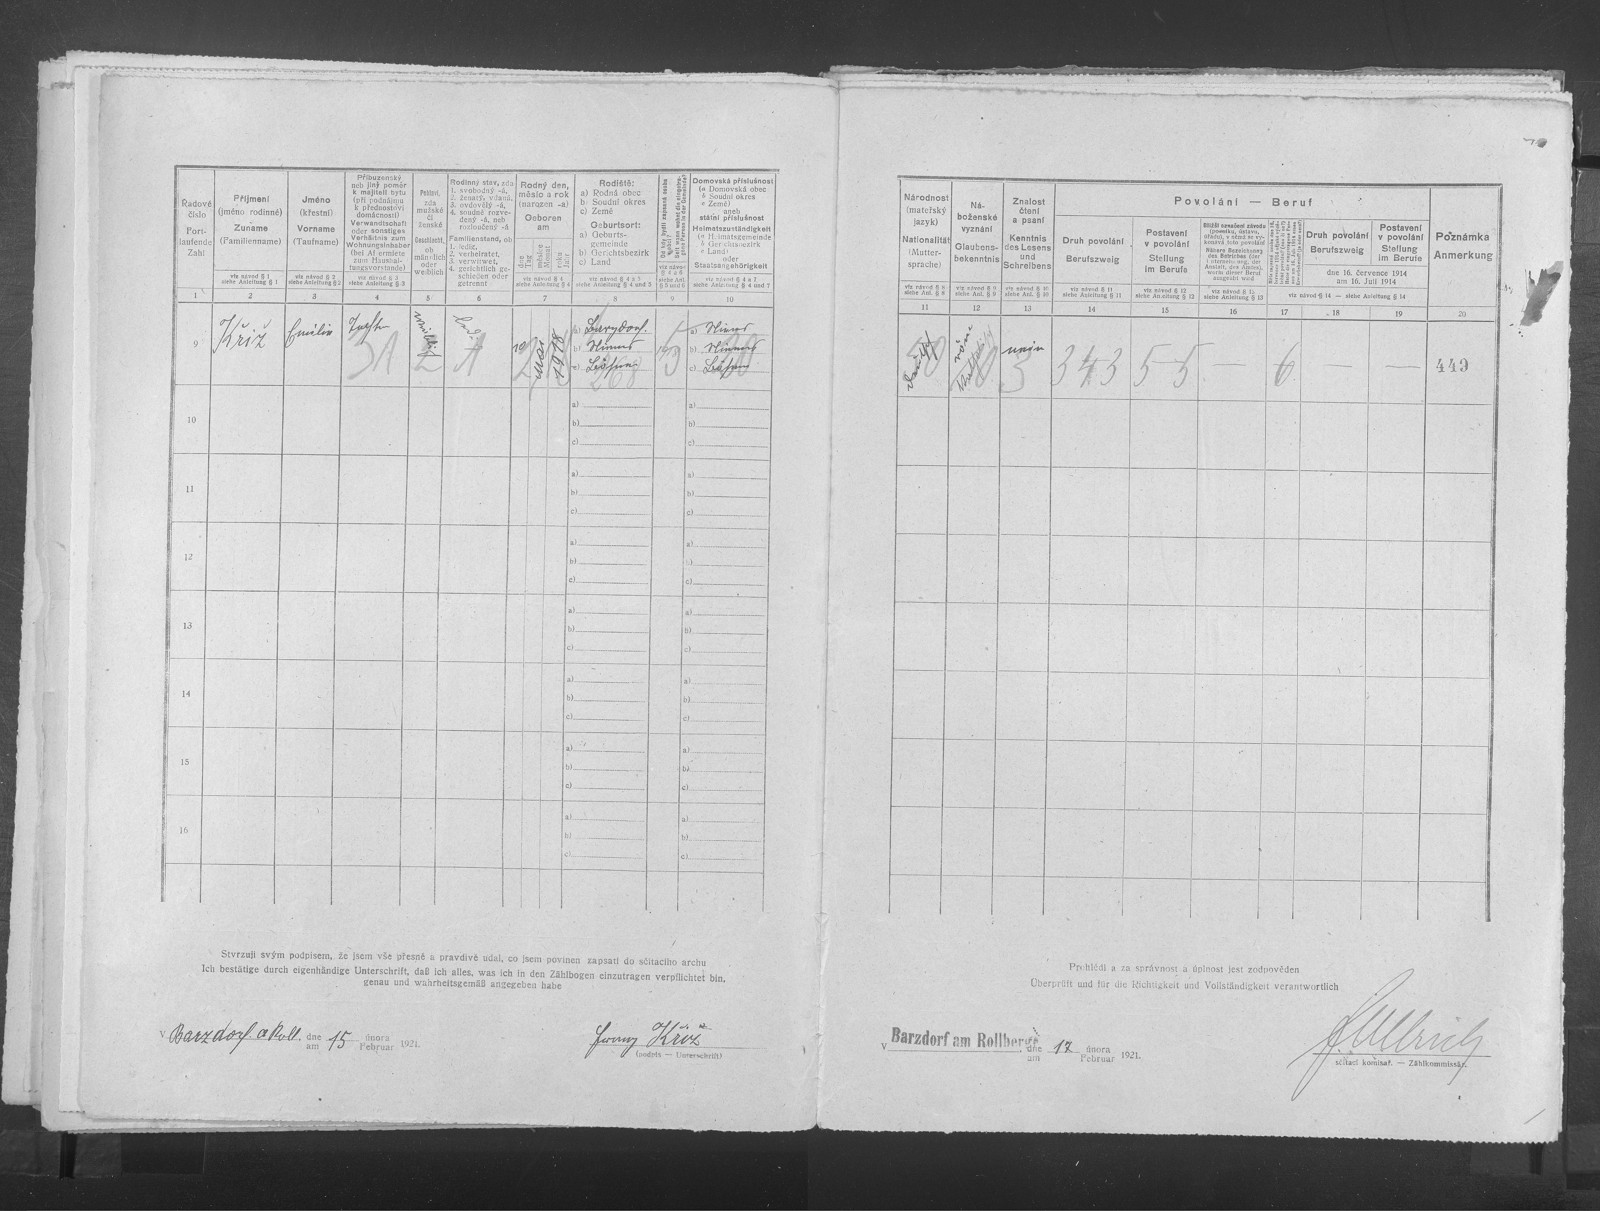 Řadové číslo
Fort-
laufende
Zahl
Příjmení
(jméno rodinné)
Zuname
(Familienname)
viz návod § 1
siehe Anleitung § 1
Jméno
(křestní)
Vorname
(Taufname)
viz návod § 2
siehe Anleitung § 2
Příbuzenský
neb jiný poměr
k majiteli bytu
(při podnájmu
k přednostovi
domácnosti)
Verwandtschaft
oder sonstiges
Verhältnis zum
Wohnungsinhaber
(bei Aftermiete
zum Haushal-
tungsvorstande)
viz návod § 3
siehe Anleitung § 3
Pohlaví,
zda
mužské
či
ženské
Geschlecht,
ob
männlich
oder
weiblich
Rodinný stav, zda
1. svobodný -á,
2. ženatý, vdaná,
3. ovdovělý -á,
4. soudně rozve-
dený -á, neb
rozloučený -á
Familienstand, ob
1. ledig,
2. verheiratet,
3. verwitwet,
4. gerichtlich ge-
schieden oder
getrennt
Rodný den,
měsíc a rok
(narozen -a)
Geboren
am
dne
Tag
měsíce
Monat
roku
Jahr
viz návod § 4
siehe Anleitung § 4
Rodiště:
a) Rodná obec
b) Soudní okres
c) Země
Geburtsort:
a) Geburts-
gemeinde
b) Gerichtsbezirk
c) Land
viz návod § 4 a 5
siehe Anleitung § 4 und 5
Domovská příslušnost
(a Domovská obec
b Soudní okres
c Země)
aneb
státní příslušnost
Heimatszuständigkeit
(a Heimatsgemeinde
b Gerichtsbezirk
c Land)
oder
Staatsangehörigkeit
viz návod § 4 a 7
siehe Anleitung § 4 und 7
1 2 3 4 5 6 7 8 9 10
9 Kříž Emilie
Mai 1918
a) Barzdorf
b) Niemes
c) Böhmen
a) Niemes
b) Niemes
c) Böhmen
10 a) a)
b) b)
c) c)
11 a) a)
b) b)
c) c)
12 a) a)
b) b)
c) c)
13 a) a)
b) b)
c) c)
14 a) a)
b) b)
c) c)
15 a) a)
b) b)
c) c)
16 a) a)
b) b)
c) c)
Stvrzuji svým podpisem, že jsem vše přesně a pravdivě udal, co jsem povinen zapsati do sčítacího archu
Ich bestätige durch eigenhändige Unterschrift, daß ich alles, was ich in den Zählbogen einzutragen verpflichtet bin,
genau und wahrheitsgemäß angegeben habe
V Barzdorf a Roll. dne
am 15 února
Februar 1921.
Franz Kříž
(podpis — Unterschrift)
Národnost
(mateřský
jazyk)
Nationalität
(Mutter-
sprache)
viz návod § 8
siehe Anl. § 8
Ná-
boženské
vyznání
Glaubens-
bekenntnis
viz návod § 9
siehe Anl. § 9
Znalost
čtení
a psaní
Kenntnis
des Lesens
und
Schreibens
viz návod § 10
siehe Anl. § 10
Povolání — Beruf
Druh povolání
Berufszweig
viz návod § 11
siehe Anleitung § 11
Postavení
v povolání
Stellung
im Berufe
viz návod § 12
siehe Anleitung § 12
viz návod § 13
siehe Anleitung § 13
Druh povolání
Berufszweig
Postavení
v povolání
Stellung
im Berufe
dne 16. července 1914
am 16. Juli 1914
viz návod § 14 — siehe Anleitung § 14
Poznámka
Anmerkung
11 12 13 14 15 16 17 18 19 20
nein
3 343 55 — 6 — — 449
Prohlédl a za správnost a úplnost jest zodpověden
Überprüft und für die Richtigkeit und Vollständigkeit verantwortlich
V Barzdorf am Rollberge dne
am 17 února
Februar 1921.
Ullrich
sčítací komisař. — Zählkommissär.